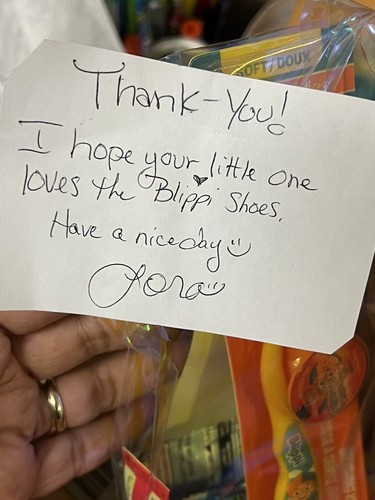 SOFT/DOUX
Thank-You!
I hope your little one
loves the Blippi Shoes.
Have a nice day
Lora